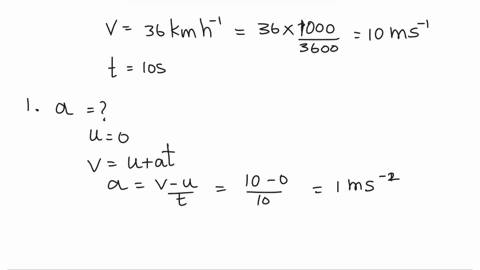 V = 36 kmh⁻¹ = 36 × 1000/3600 = 10 ms⁻¹
t = 10s
1. a = ?
u = 0
v = u + at
a = v - u/t = 10 - 0/10 = 1 ms⁻²